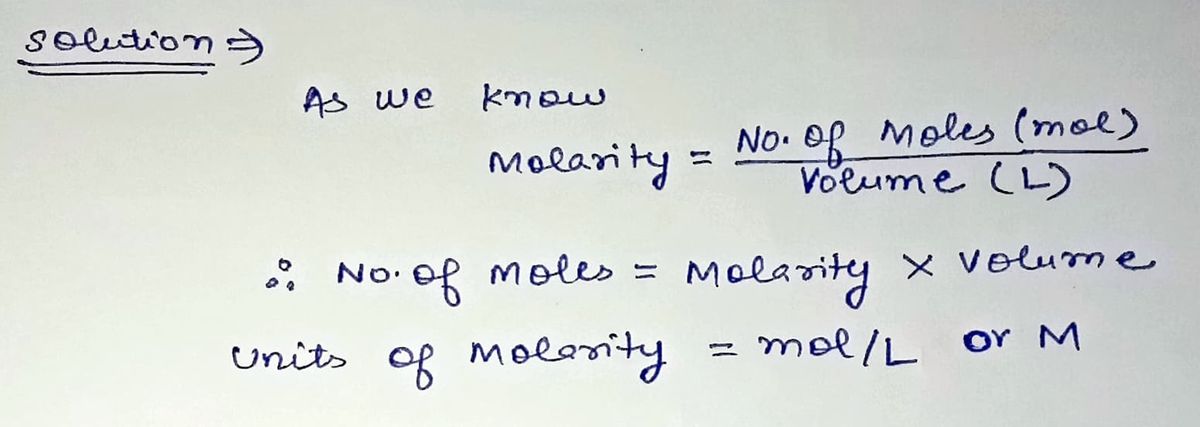 Solution ⇒
As we know
Molarity = No. of Moles (mol) / Volume (L)
∴ No. of moles = Molarity × Volume
Units of Molarity = mol/L or M